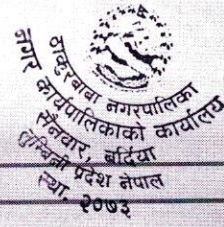 ठाकुरबाबा नगरपालिका
नगर कार्यपालिकाको कार्यालय
सैनवार, बर्दिया
लुम्बिनी प्रदेश नेपाल
स्था. २०७३